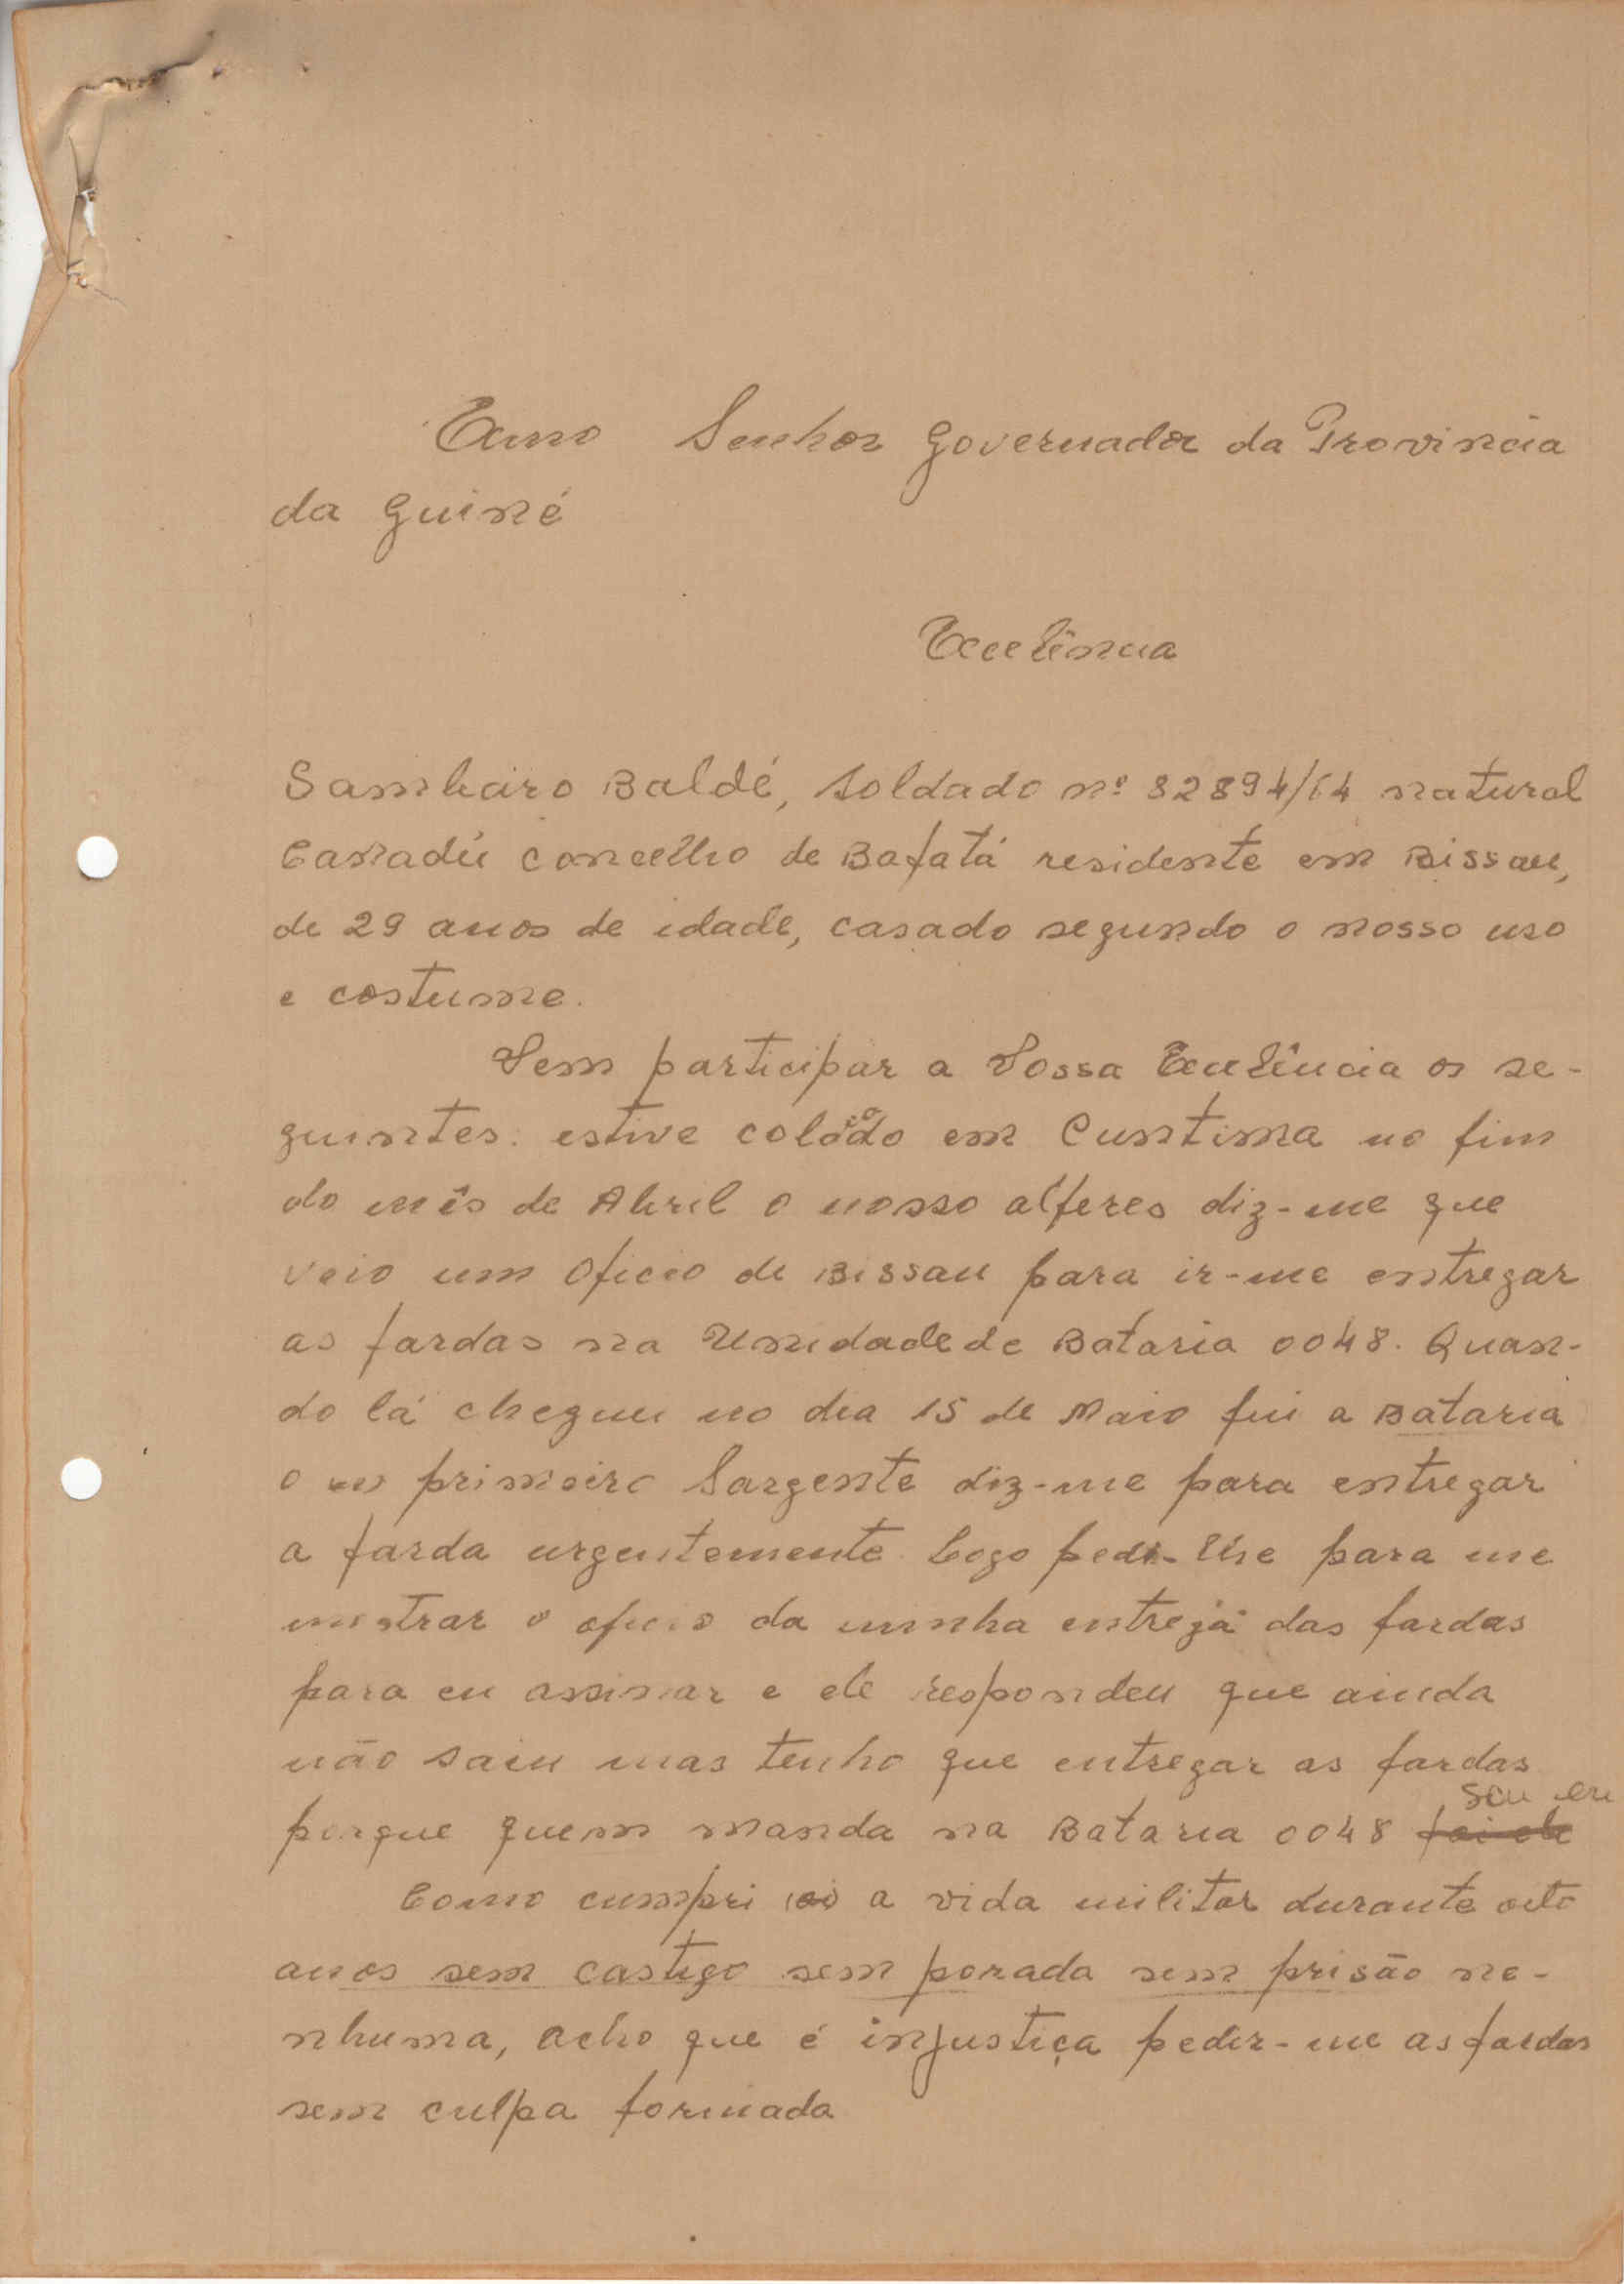 Exmo Senhor Governador da Provincia
da Guiné
Excelência
Sambairo Baldé, soldado nº 82894/64 natural
Canadú concelho de Bafatá residente em Bissau,
de 29 anos de idade, casado segundo o nosso uso
e costume.
Vem participar a Vossa Excelência os se-
guintes: estive em Cuntima no fim
do mês de Abril o nosso alferes diz-me que
veio um oficio de Bissau para ir-me entregar
as fardas na Unidade de Bataria 0048. Quan-
do lá cheguei no dia 15 de Maio fui a Bataria
o primeiro Sargente diz-me para entregar
a farda urgentemente. Logo pedi-lhe para me
mostrar o oficio da minha entrega das fardas
para eu assinar e ele respondeu que ainda
não saiu mas tenho que entregar as fardas
porque quem manda na Bataria 0048 foi ele sou eu
Como cumpri a vida militar durante oito
anos sem castigo sem porada sem prisão ne-
nhuma, acho que é injustiça pedir-me as fardas
sem culpa formada